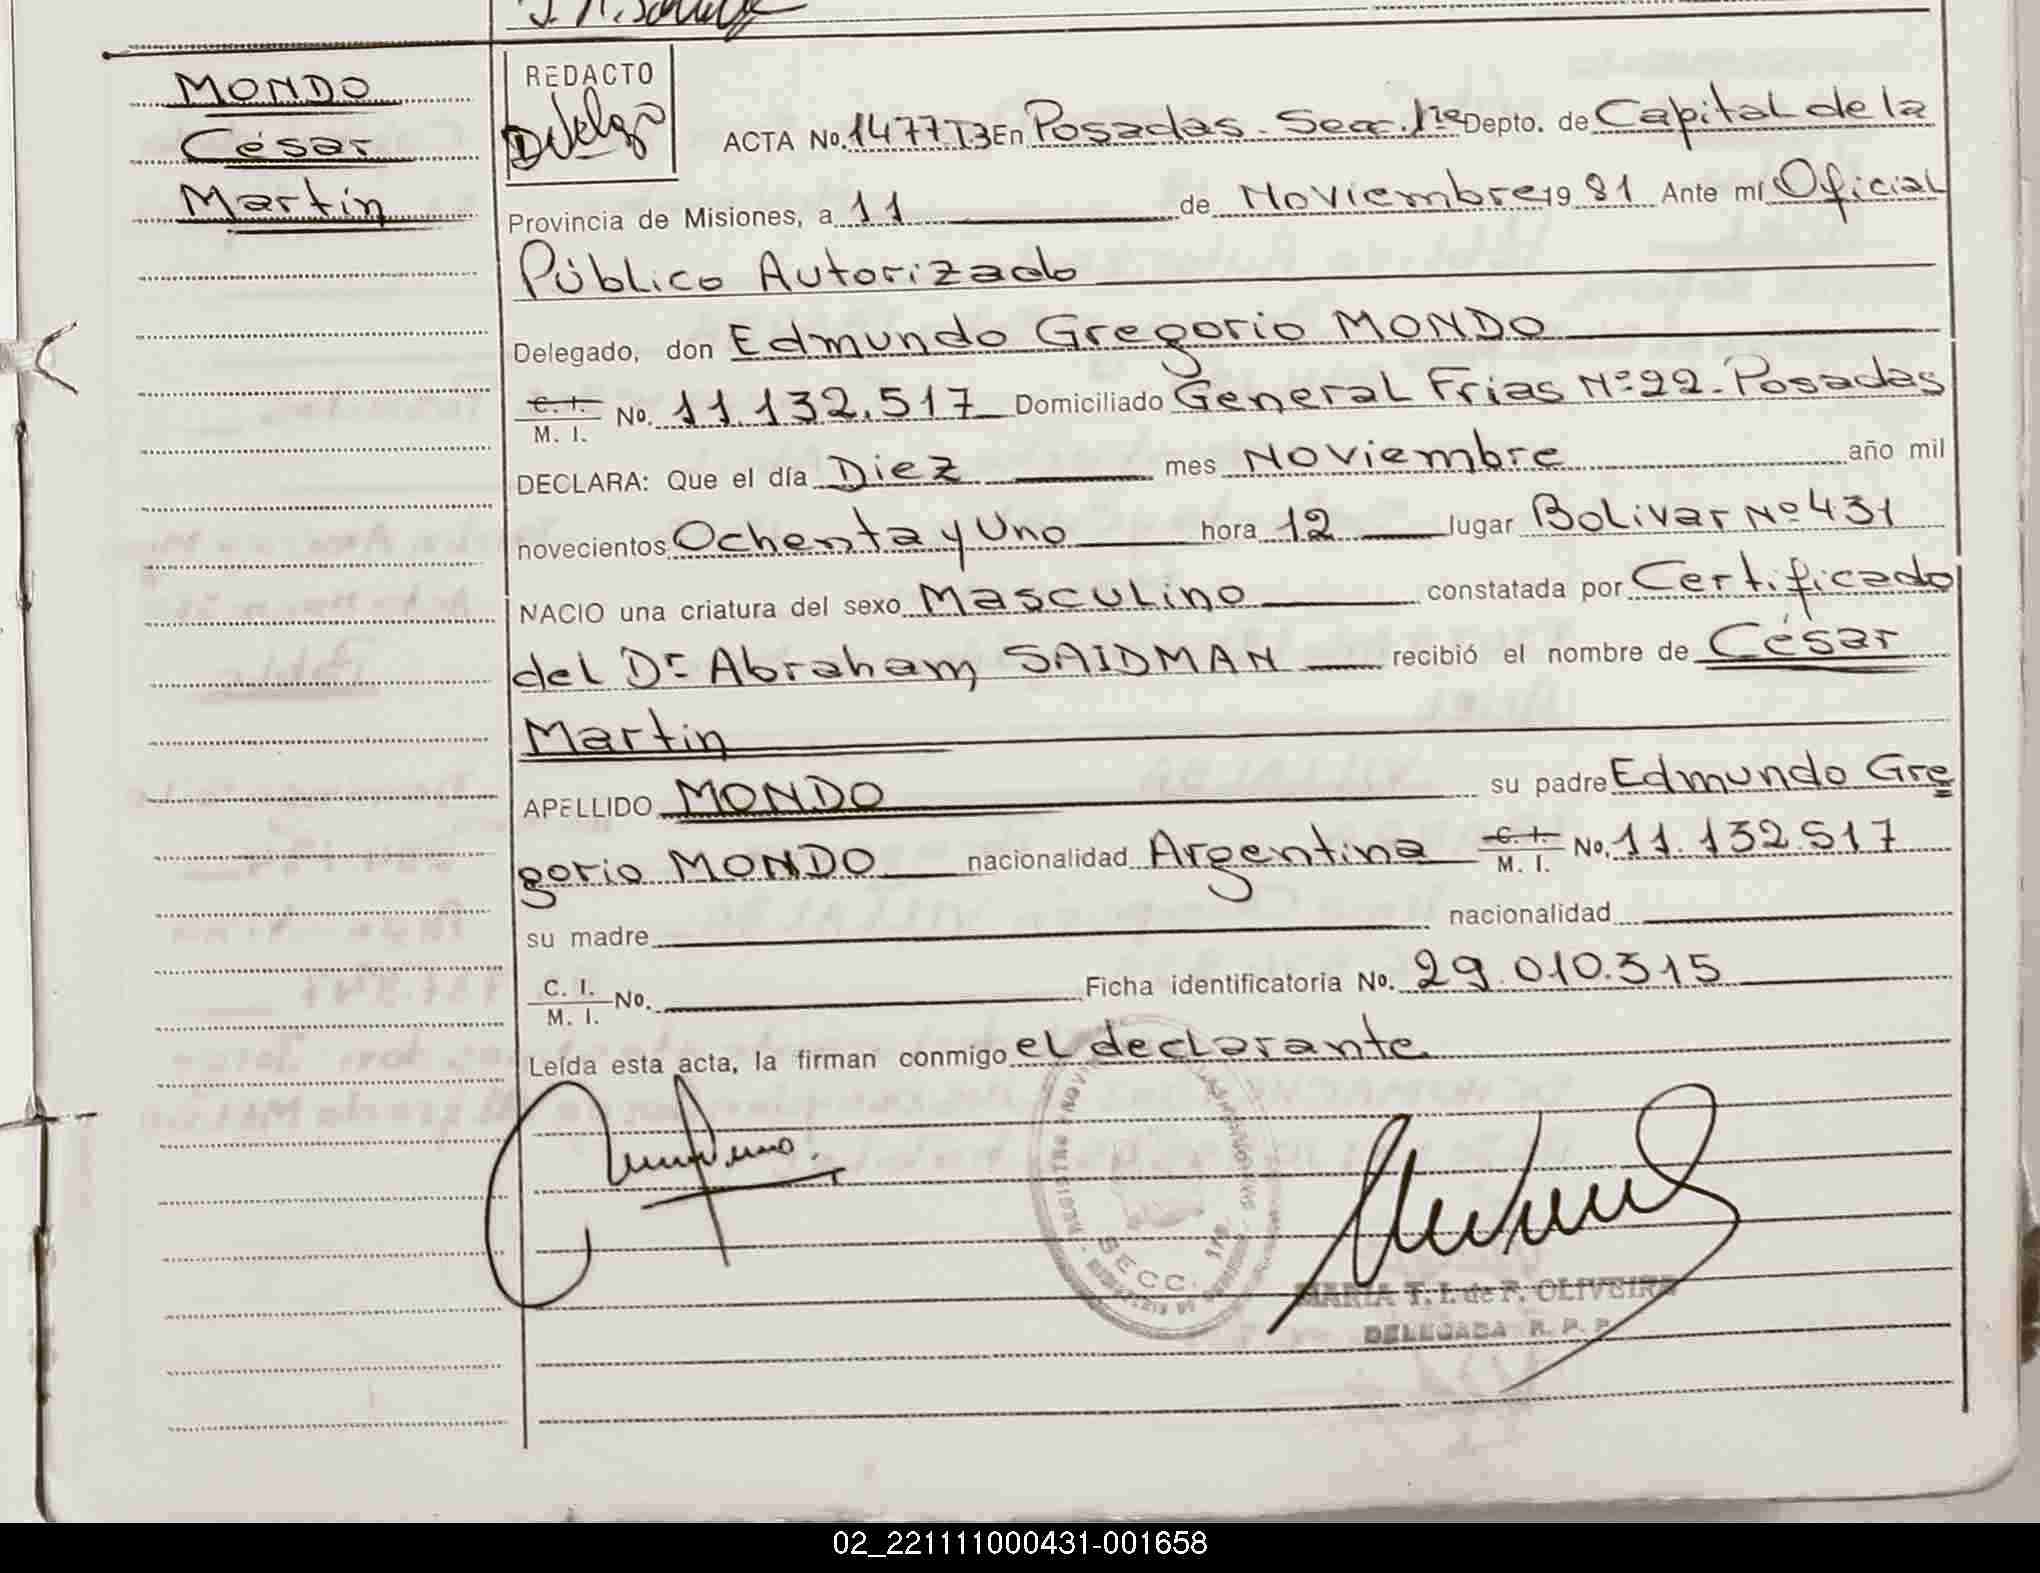 MONDO
César
Martín
REDACTO
ACTA No. 1477T3 En Posadas - Secc. 1ra Depto. de Capital de la
Provincia de Misiones, a 11 de Noviembre 19 81 Ante mí Oficial
Público Autorizado
Delegado, don Edmundo Gregorio MONDO
C. I. M. I. No. 11.132.517 Domiciliado General Frias Nº 22 - Posadas
DECLARA: Que el día Diez mes Noviembre año mil
novecientos Ochenta y Uno hora 12 lugar Bolivar Nº 431
NACIO una criatura del sexo Masculino constatada por Certificado
del Dr Abraham SAIDMAN recibió el nombre de César
Martín
APELLIDO MONDO su padre Edmundo Gre
gorio MONDO nacionalidad Argentina C. I. M. I. No. 11.132.517
su madre nacionalidad
C. I. M. I. No. Ficha identificatoria No. 29.010.315
Leída esta acta, la firman conmigo el declarante
SECC. 1ra
MARIA T. I. de F. OLIVEIRA
DELEGADA R. P. P.
02_221111000431-001658